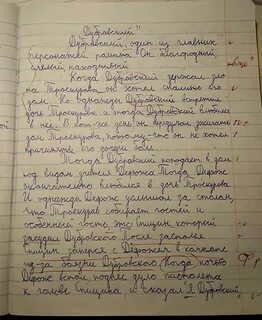 Дубровский"
Дубровский, один из главних
персонажей рамана. Он благородний,
смелый, находчивый
Когда Дубровский держал зло
на Троекурова, он хотел спалить его
дом. Но однажды Дубровский встретил
дочь Троекурова и тогда Дубровский влюбился
в неё. В том-же уже он передумал сжигать
дом Троекурова, потому-что он не хотел
причинять его дочери боль.
Тогда Дубровский попадает в дом
под видом учителя Дефоржа. Тогда Дефорж
окончательно влюбился в дочь Троекурова
И однажды Дефорж услышал за столом,
что Троекуров собирает гостей и
особенный гость это Спицин который
засудил Дубровского. После застолья
Спицын заперся с Дефоржем в комнате
из-за боязни Дубровского. Когда ночью
Дефорж встал, поднёс дуло пистолета
к голове Спицина и сказал „Я Дубровский.